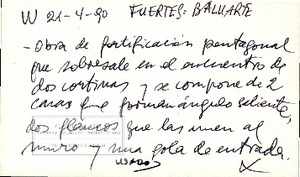 W 21-4-90 FUERTES: BALUARTE
- Obra de fortificación pentagonal
que sobresale en el encuentro de
dos cortinas y se compone de 2
caras que forman ángulo saliente,
dos flancos que las unen al
muro y una gola de entrada.
USADO